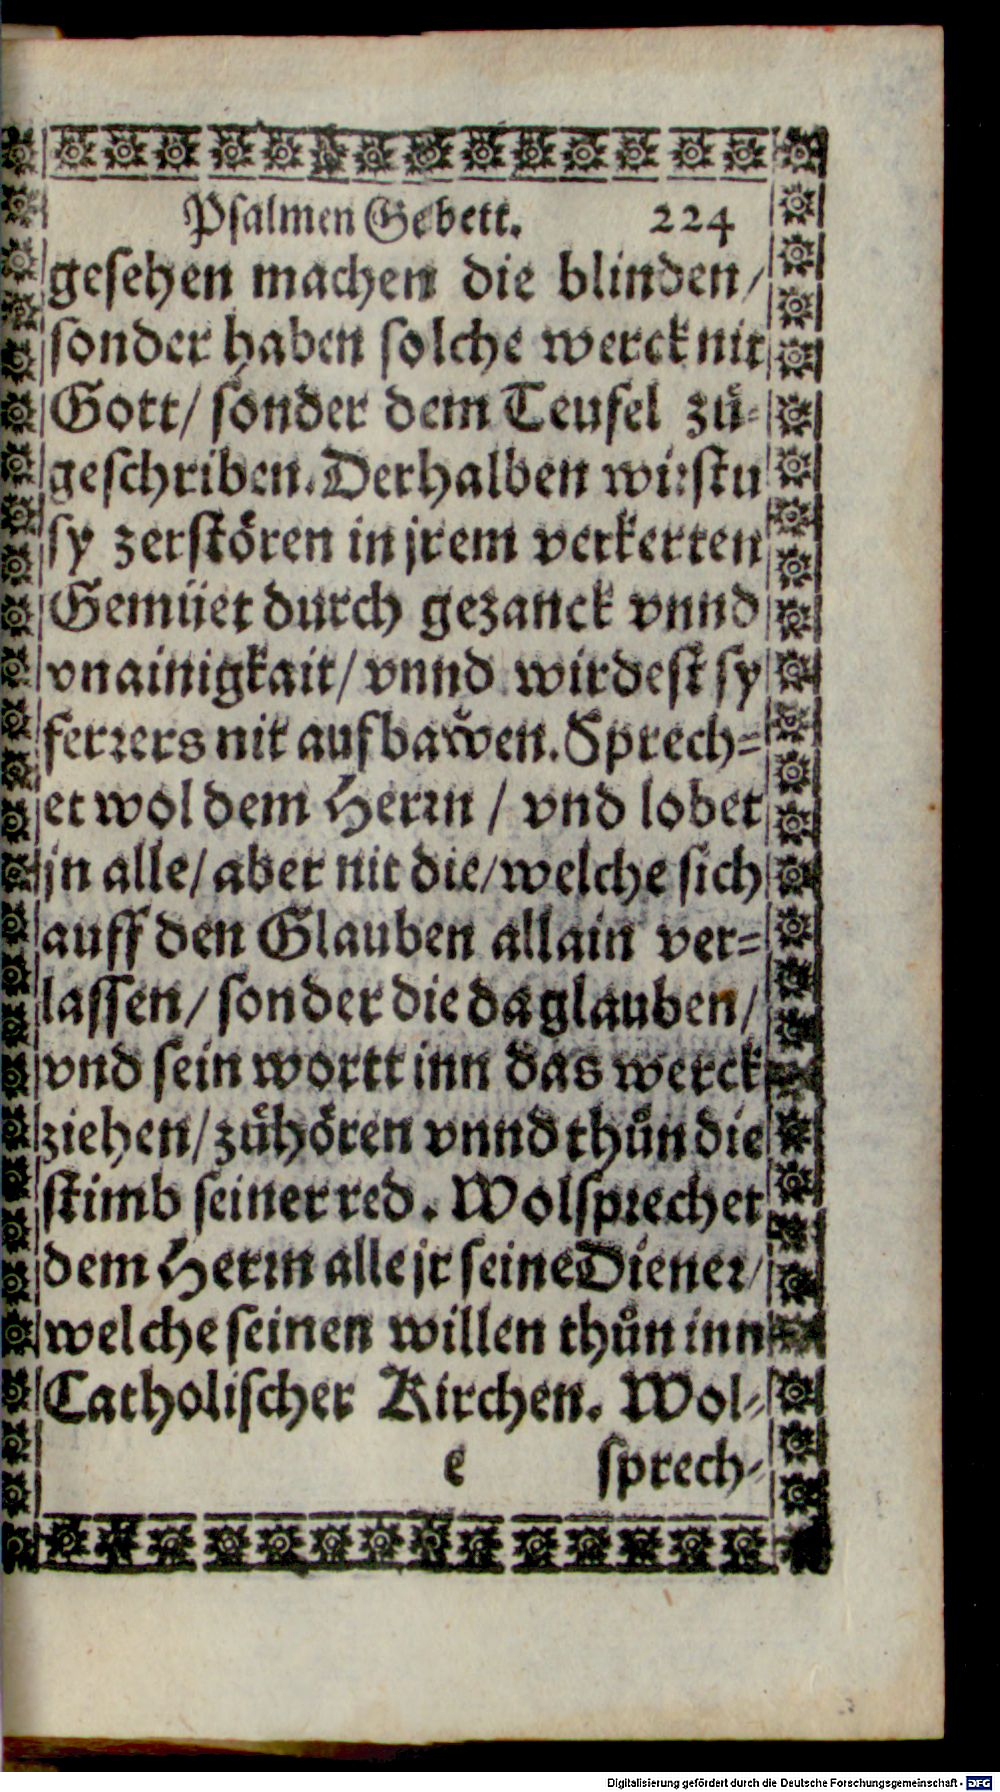 Psalmen Gebett. 224
gesehen machen die blinden/
sonder haben solche werck nit
Gott/ sonder dem Teufel zů-
geschriben. Derhalben wirstu
sy zerstören in jrem verkerten
Gemüet durch gezanck vnnd
vnainigkait/ vnnd wirdest sy
ferrers nit aufbawen. Sprech-
et wol dem Herrn / vnd lobet
jn alle/ aber nit die/ welche sich
auff den Glauben allain ver-
lassen/ sonder die da glauben/
vnd sein wortt inn das werck
ziehen/ zůhören vnnd thůn die
stimb seiner red. Wolsprechet
dem Herrn alle jr seine Diener/
welche seinen willen thůn inn
Catholischer Kirchen. Wol-
e sprech-
Digitalisierung gefördert durch die Deutsche Forschungsgemeinschaft - DFG